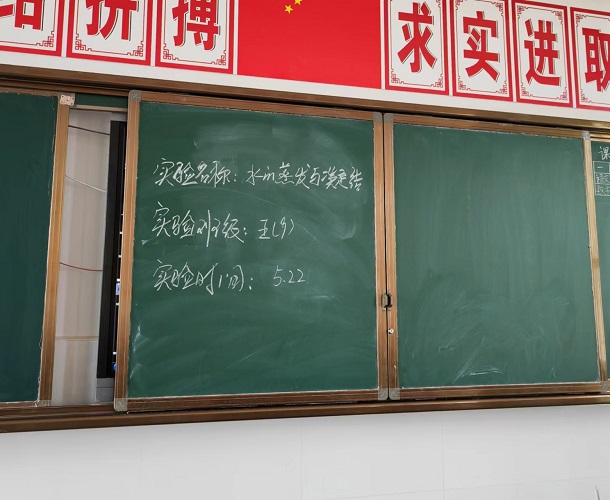 拼搏
求实进取
实验名称：水的蒸发与凝结
实验班级：五(9)
实验时间：5.22
课